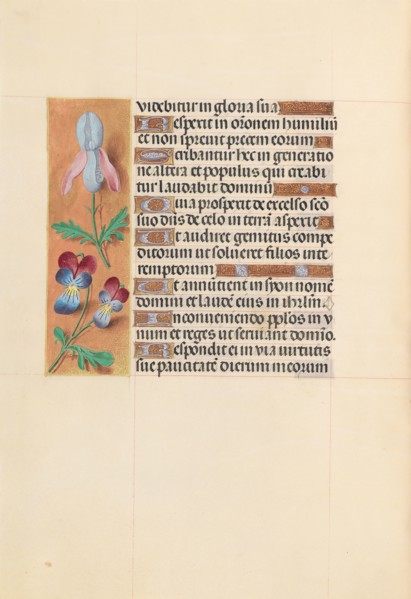 videbitur in gloria sua
Respexit in orōnem humiliū
et non sprevit precem eorum
Scribantur hec in generatio
ne altera et populus qui creabi
tur laudabit dominū
Quia prospexit de excelso scō
suo dn̄s de celo in terrā aspexit
Ut audiret gemitus compe
ditorum ut solveret filios inte
remptorum
Ut annūtient in syon nomē
domini et laudē eius in ihrlm̄
In conveniendo pp̄los in v
num et reges ut serviant domīo.
Respondit ei in via virtutis
sue paucitatē dierum meorum